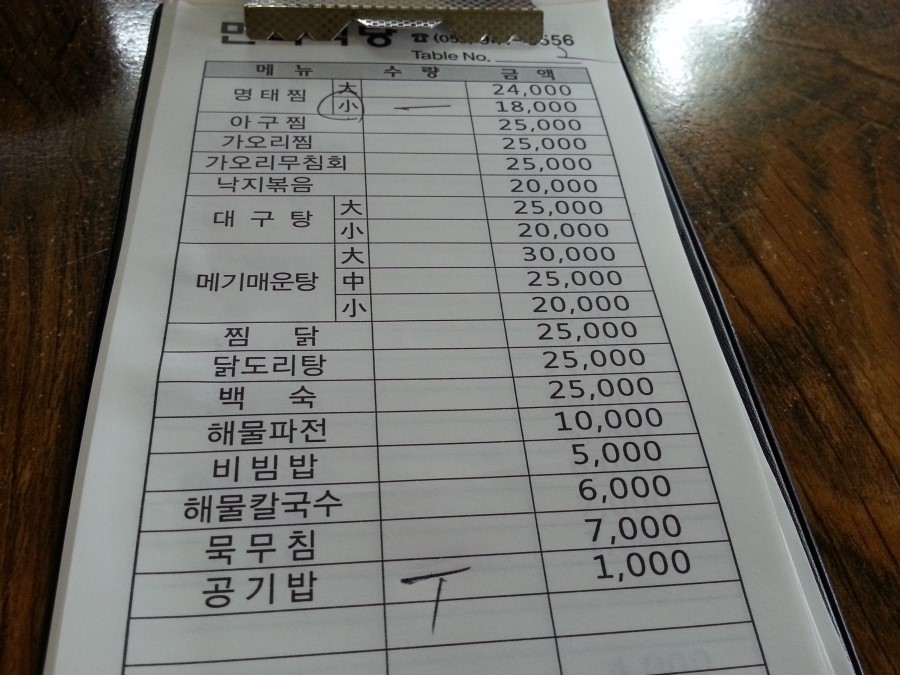 Table No. 2
메 뉴 수 량 금 액
명태찜 大 24,000
小 一 18,000
아구찜 25,000
가오리찜 25,000
가오리무침회 25,000
낙지볶음 20,000
대 구 탕 大 25,000
小 20,000
메기매운탕 大 30,000
中 25,000
小 20,000
찜 닭 25,000
닭도리탕 25,000
백 숙 25,000
해물파전 10,000
비빔밥 5,000
해물칼국수 6,000
묵무침 7,000
공기밥 T 1,000